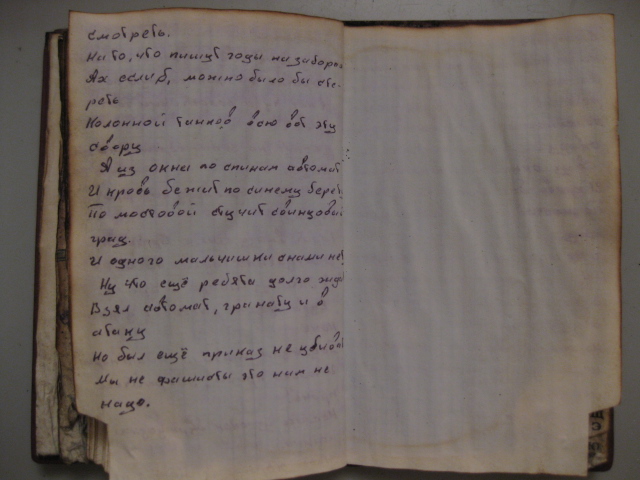 смотреть.
На то, что пишут годы на заборе
Ах если б, можно было бы сте-
реть
Колонной танков всю вот эту
свору
А из окна по спинам автомат
И кровь бежит по синему берет
По мостовой стучит свинцовый
град.
И одного мальчишки с нами нет
Ну что ещё ребята долго жда
Взял автомат, гранату и в
атаку
Но был ещё приказ не убиват
Мы не фашисты это нам не
надо.